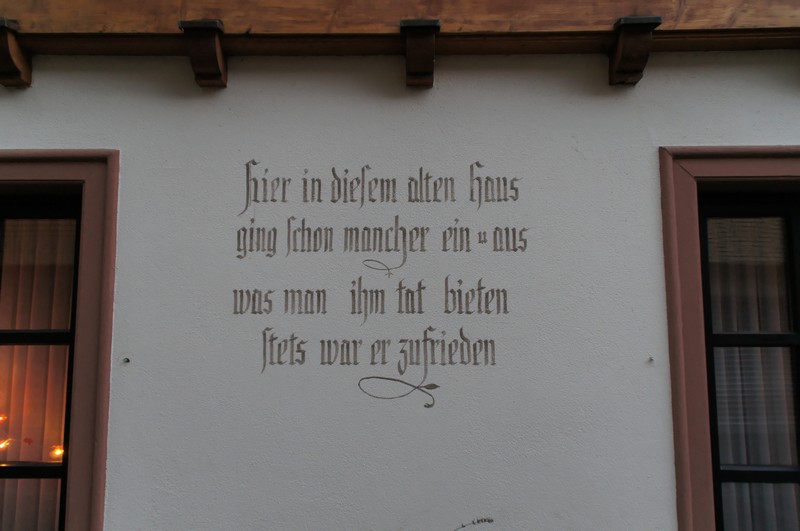 Hier in dieſem alten Haus
ging ſchon mancher ein u aus
was man ihm tat bieten
ſtets war er zufrieden